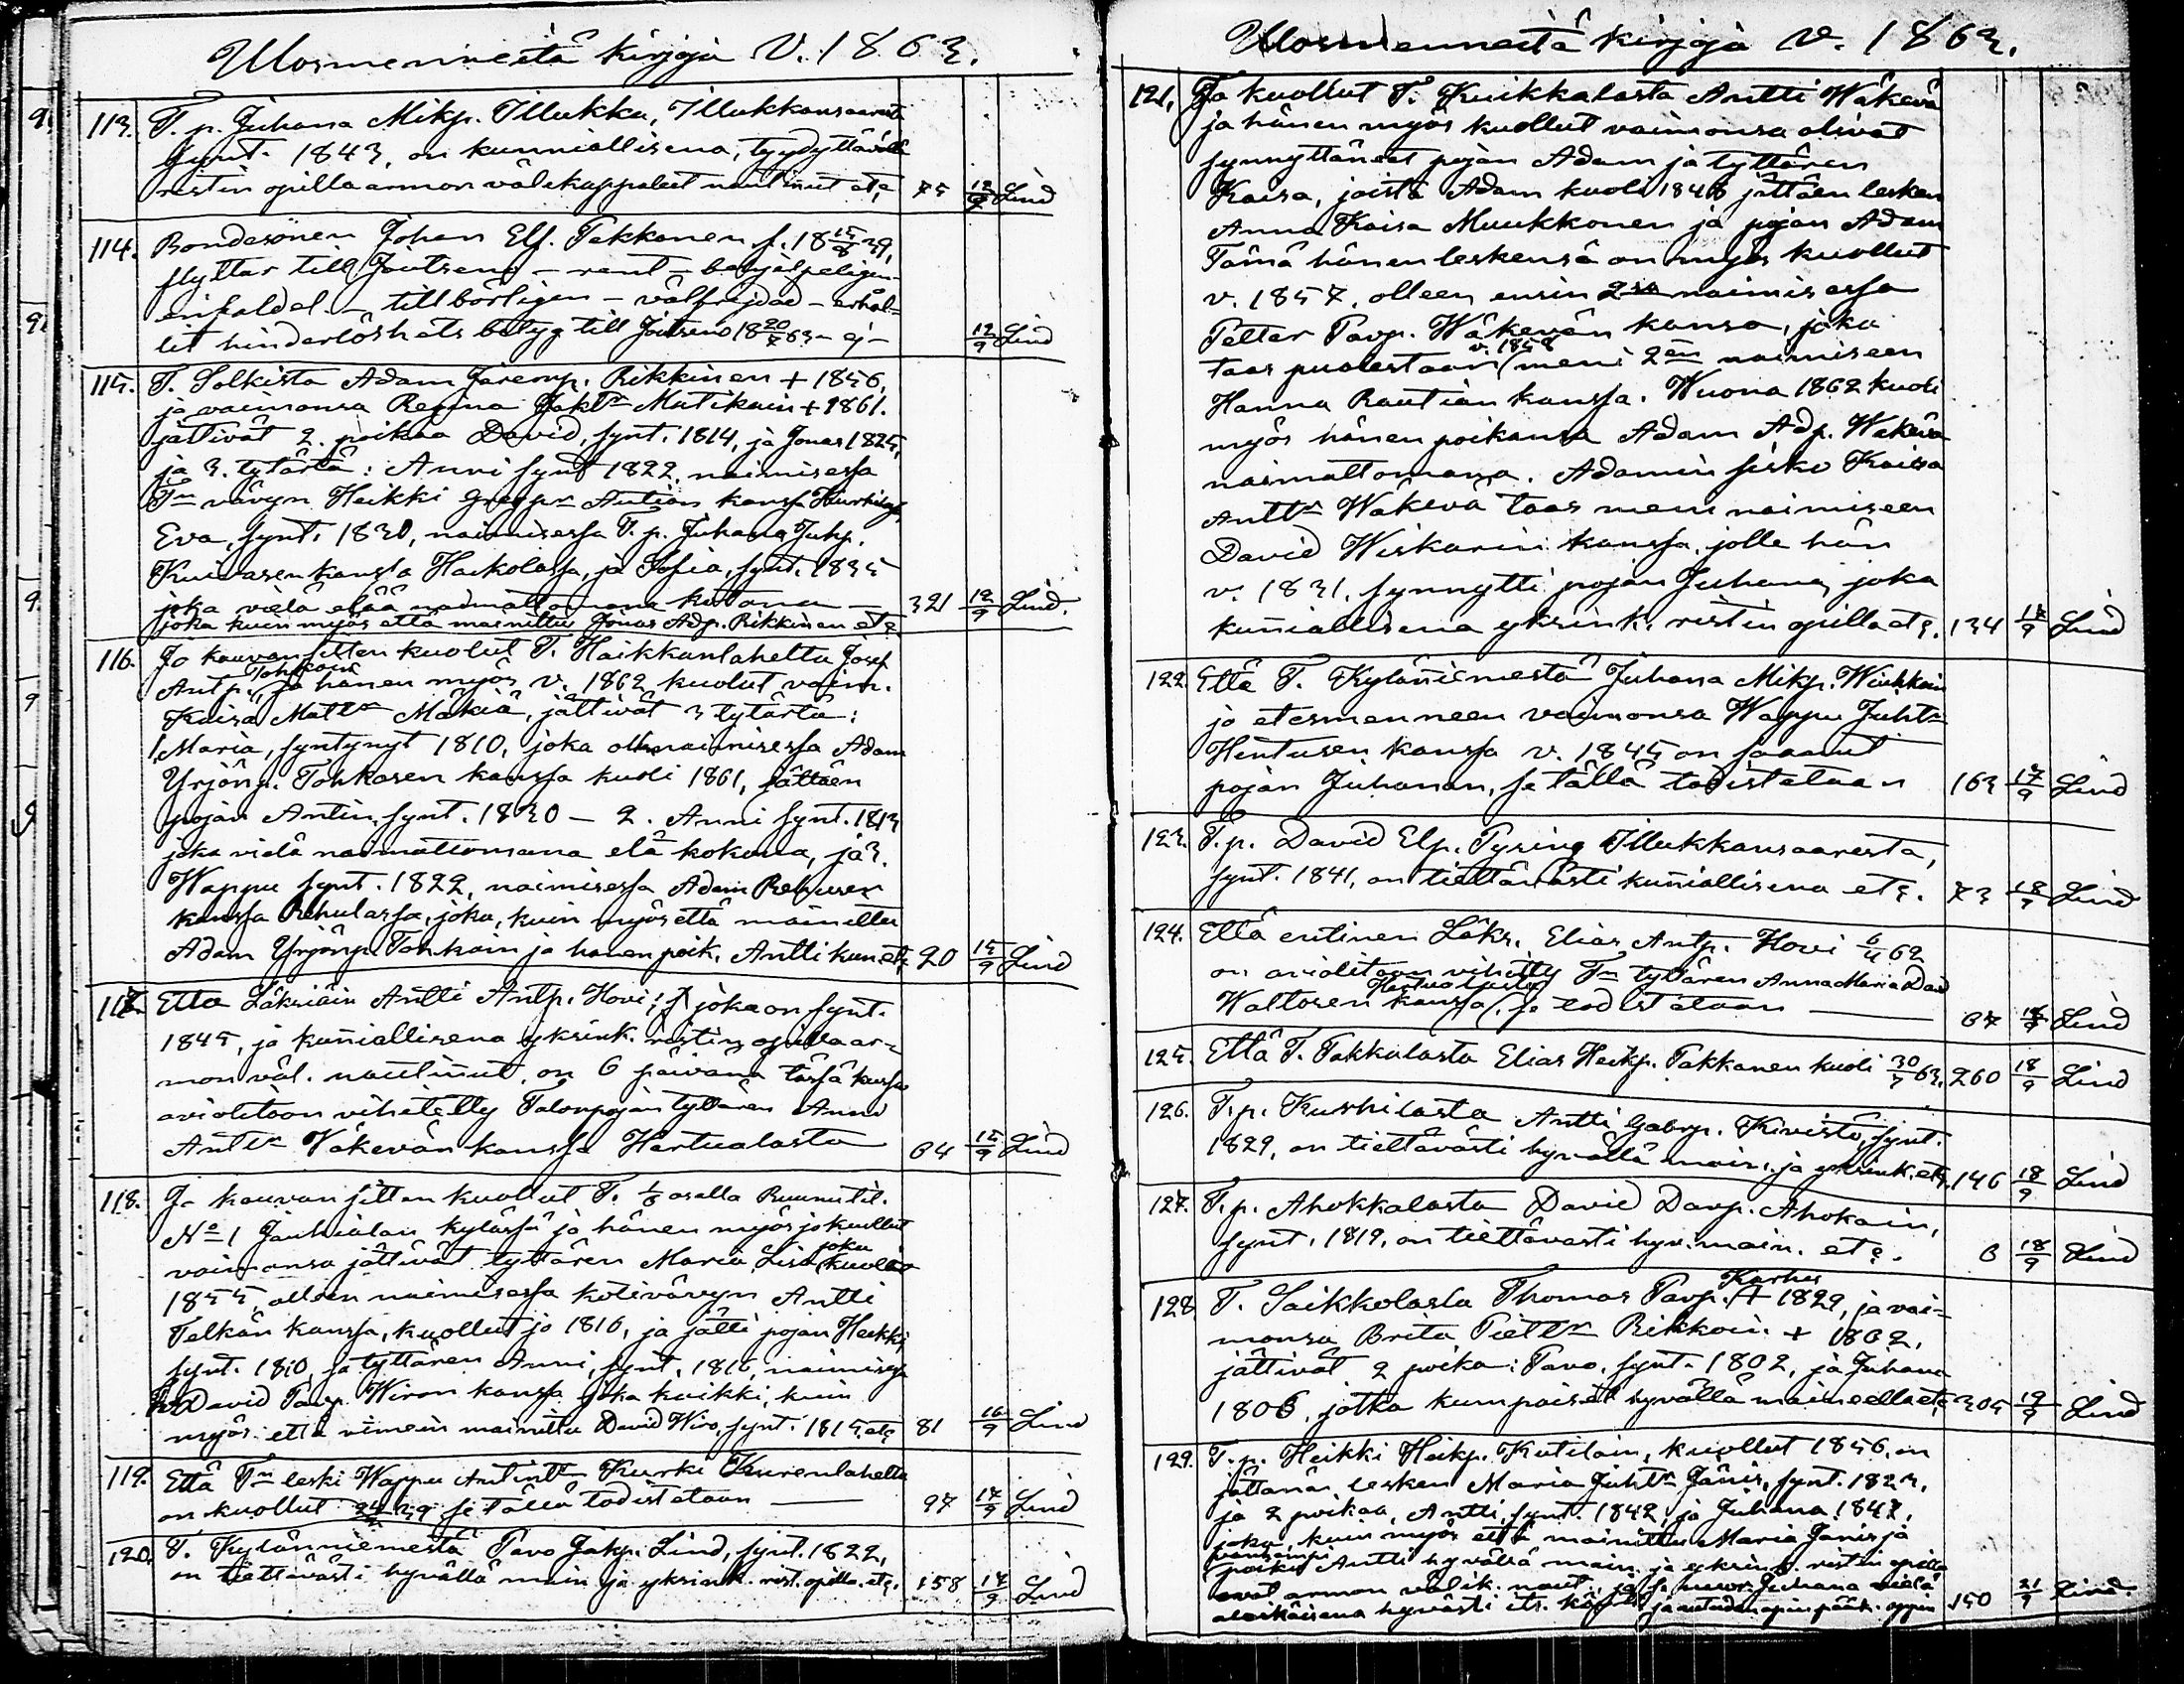 Ulosmenneitä kirjoja V. 1863.
113. T. p. Juhana Mikp. Illukka, Illukkansaaresta
synt. 1843, on kunniallisena, tyydyttävällä
ristin opilla armon välikappaleet nautinut etc. 75 12/9 Lind
114. Bondesonen Johan Elf. Pakkanen f. 18 15/8 39,
flyttar till Joutseno – rent –
enfaldel. – tillbörligen – välfrejdad – erhål-
lit hinderlöshets betyg till Joutseno 18 20/7 63 – ej – 12/9 Lind
115. T. Solkista Adam Järemp. Rikkinen + 1856,
ja vaimonsa Regina Jakt:r Mutikain + 1861.
jättivät 2. poikaa David, synt. 1814, ja Jonas 1825,
ja 3. tytärtä: Anni synt 1822. naimisessa
T:n vävyn Heikki Gregp:n Antian kanssa
Eva, synt. 1830, naimisessa T. p. Juhana Juhp.
Kuivasen kanssa Haikolassa, ja Sofia, synt. 1835
joka vielä elää naimattomana kotona —
joka kuin myös että mainittu Jonas Adp. Rikkinen etc. 321 12/9 Lind.
116. Jo kauvan sitten kuolut T. Haikkanlahelta Josef
Antp. Tohkain ja hänen myös v. 1862 kuolut vaim.
Kaisa Matt:r Mäkiä, jättivät 3 tytärtä:
1, Maria, syntynyt 1810, joka oll. naimisessa Adam
Yrjönp. Tohkasen kanssa kuoli 1861, jättäen
pojan Antin, synt. 1830 – 2. Anni synt. 1813
joka vielä naimattomana elä kotona, ja 3.
Wappu synt. 1822, naimisessa Adam Rehusen
kanssa Rehulassa, joka, kuin myös että mainittu
Adam Yrjönp. Tohkain ja hänen poik. Antti kun. etc. 20 15/9 Lind
117. Etta Läksiäin Antti Antp. Hovi, joka on synt.
1845, ja kuniallisena yksink. ristin opilla ar-
mon väl. nautinut, on 6 päivänä tässä kuussa
avioliitoon vihitetty Talonpojan tyttären Anna
Antt:r Väkevän kanssa Hertualasta 64 15/9 Lind
118. Jo kauvan sitten kuollut T. 1/6 osalla Ruunutil.
N:o 1 Jäuhialan kylässä ja hänen myös jo kuollut
vaimonsa jättivät tyttären Maria Lisa, joka kuoli
1855, olleen naimisessa kotivävyn Antti
Telkän kanssa, kuollut jo 1816, ja jätti pojan Heikki
synt. 1810, ja tyttären Anni, synt. 1816, naimisessa
David Pavp. Wiron kanssa joka kaikki, kuin
myös että viimein mainittu David Wiro, synt. 1815. etc 81 16/9 Lind
119. Että T:n leski Wappu Antint:r Kurki Kurenlahelta
on kuollut 24/ 39 se tällä todistetaan — 97 17/9 Lind
120. T. Kylänniemestä Pavo Jakp. Lind, synt. 1822,
on tiettävästi hyvällä main. ja yksink. rist. opilla. etc. 158 17/9 Lind
Ulosmenneitä kirjoja V. 1863.
121. Jo kuollut T. Kuikkalasta Antti Wäkevä
ja hänen myös kuollut vaimonsa olivat
synnyttäneet pojan Adam ja tyttären
Kaisa, joista Adam kuoli 1848 jättäen lesken
Anna Kaisa Muukkonen ja pojan Adam
Tämä hänen leskensä on myös kuollut
v. 1857. olleen ensin 2:sa naimisessa
Petter Pavp. Wäkevän kanssa, joka
taas puolestaan v. 1858 meni 2:en naimiseen
Hanna Rautian kanssa. Wuona 1862 kuoli
myös hänen poikansa Adam Adp. Wäkevä
naimattomana. Adamin sisko Kaisa
Antt:r Wäkevä taas meni naimiseen
David Wiskarin kanssa, jolle hän
v. 1831, synnytti pojan Juhana, joka
kuniallisena yksink. ristin opilla etc. 134 17/9 Lind
122. Että T. Kylänniemestä Juhana Mikp. Wiukkain
jo etesmenneen vaimonsa Wappu Juht:r
Hentusen kanssa v. 1845 on saanut
pojan Juhanan, se tällä todistetaan 163 17/9 Lind
123. T. p. David Elp. Pysing Illukkansaaresta,
synt. 1841, on tiettävästi kuniallisena etc. 73 18/9 Lind
124. Että entinen Läks. Elias Antp. Hovi 6/4 62
on avioliitoon vihitty T:n tyttären Anna Maria David
Waltosen kanssa Hertualasta, se todistetaan — 64 18/9 Lind
125. Että T. Pakkalasta Elias Heikp. Pakkanen kuoli 30/7 63. 260 18/9 Lind
126. T. p. Kurhilasta Antti Gabrp. Kivistö, synt.
1829, on tiettävästi hyvällä main. ja yksink. etc. 146 18/9 Lind
127. T. p. Ahokkalasta David Davp. Ahokain,
synt. 1819, on tiettävästi hyv. main. etc. 6 18/9 Lind
128. T. Saikkolasta Thomas Pavp. Karhu + 1829, ja vai-
monsa Brita Piett:r Rikkoin + 1862,
jättivät 2 poika: Pavo, synt. 1802, ja Juhana
1806, jotka kumpaiset hyvällä maineella etc 305 19/9 Lind
129. T. p. Heikki Heikp. Kutilain, kuollut 1856, on
jättänä lesken Maria Juht:r Jänis, synt. 1823,
ja 2 poikaa, Antti, synt. 1842, ja Juhana 1847,
joka, kuin myös että mainittu Maria Janis ja
vanhempi poika Antti hyvällä main. ja yksink. ristin opilla
ovat armon välik. naut., ja se nuor. Juhana vielä
alaikäisenä hyvästi 150 21/9 Lind.